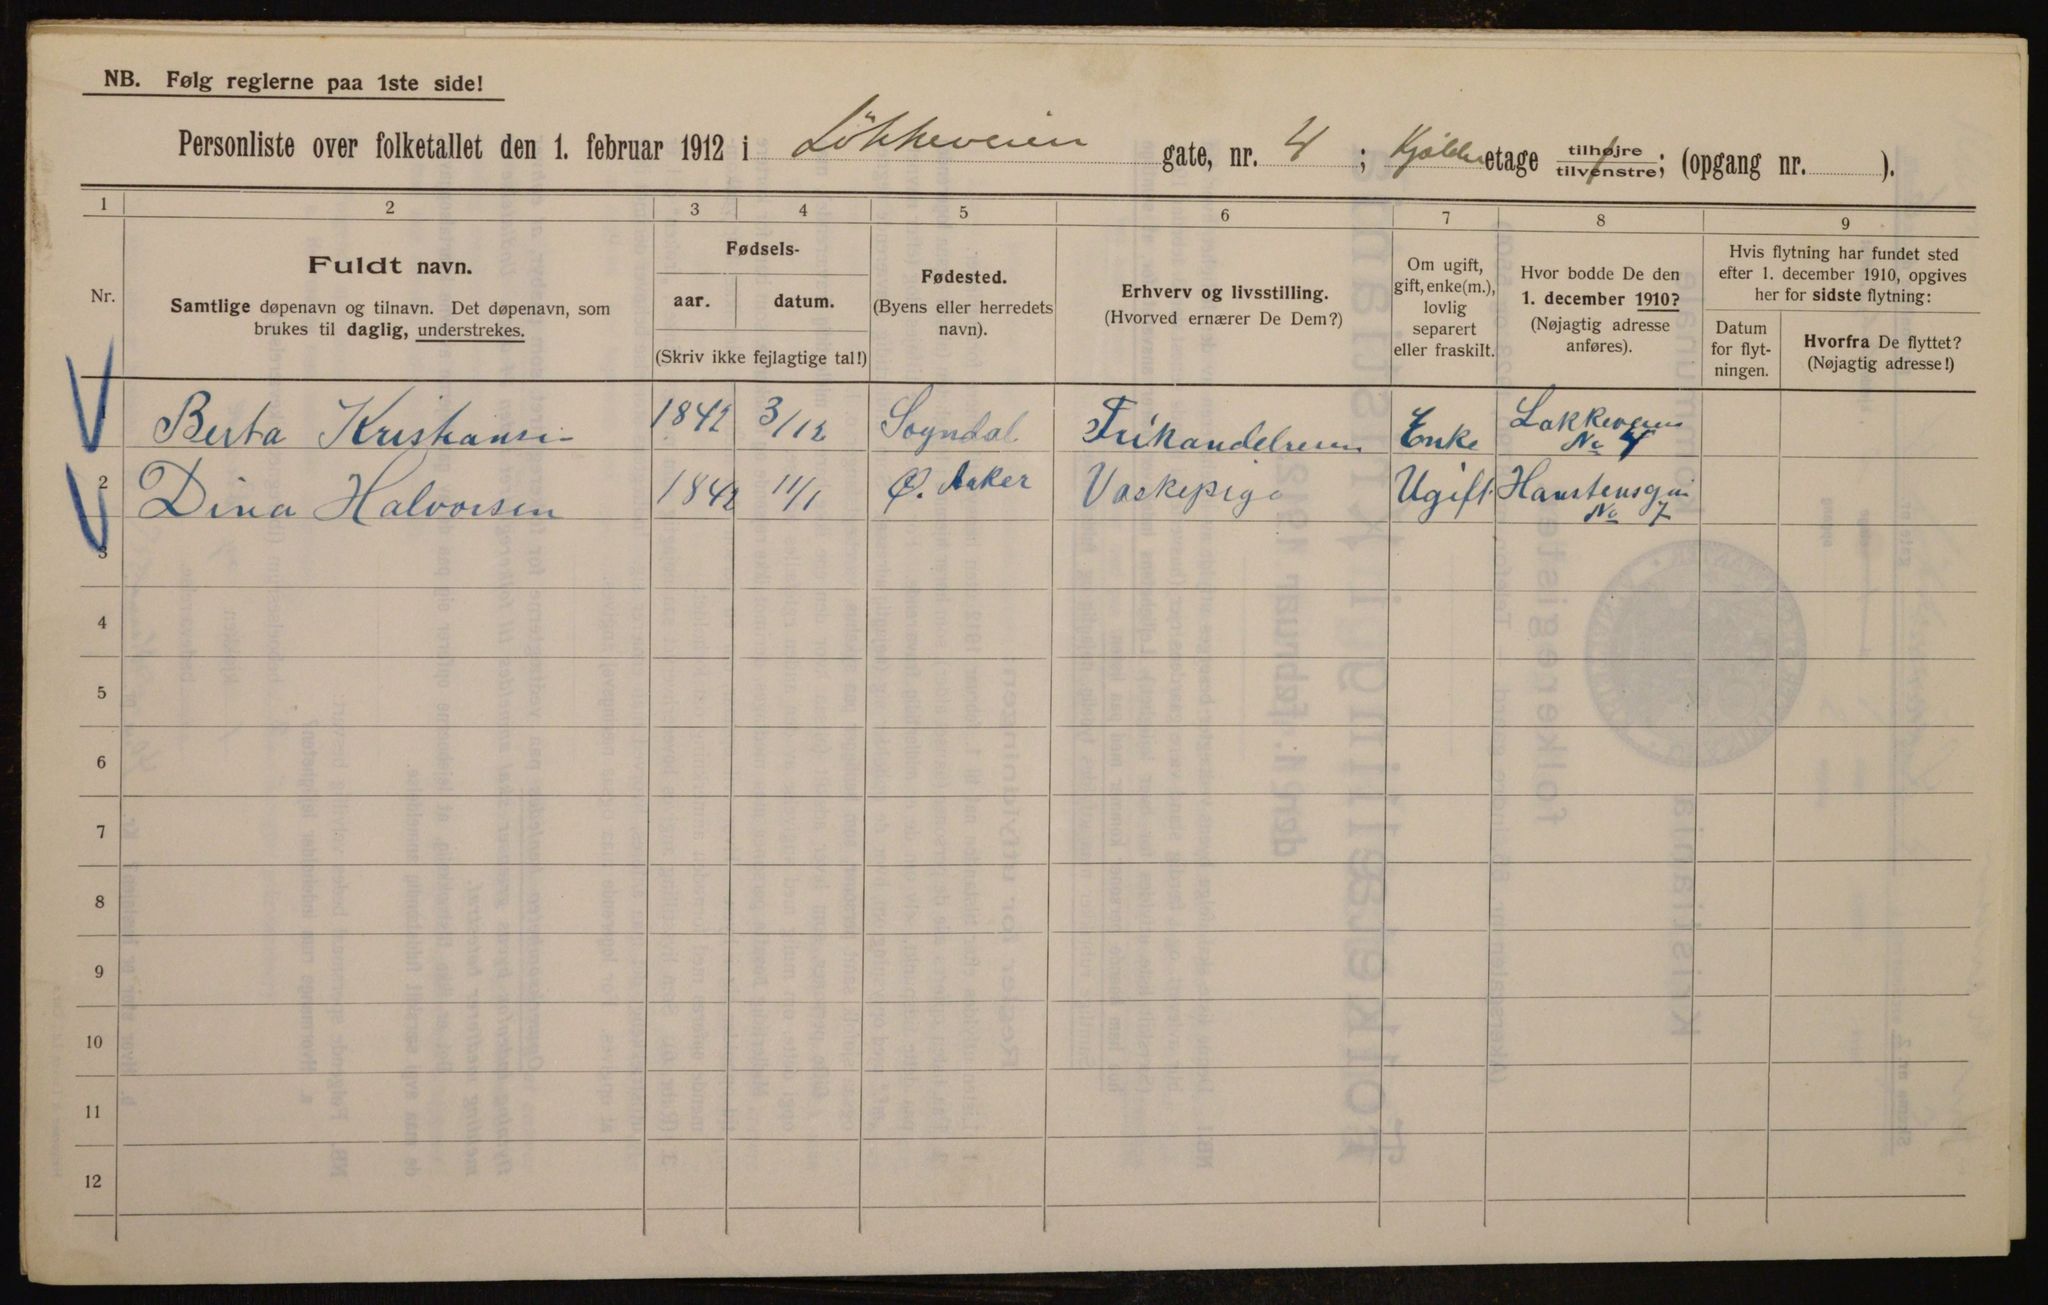 NB. Følg reglerne paa 1ste side!
Personliste over folketallet den 1. februar 1912 i Løkkeveien gate, nr. 4 ; Kjelder etage tilhøjre tilvenstre; (opgang nr. ).
1 2 3 4 5 6 7 8 9
Nr.
Fuldt navn.
Samtlige døpenavn og tilnavn. Det døpenavn, som
brukes til daglig, understrekes.
Fødsels-
aar. datum.
(Skriv ikke fejlagtige tal!)
Fødested.
(Byens eller herredets
navn).
Erhverv og livsstilling.
(Hvorved ernærer De Dem?)
Om ugift,
gift, enke(m.),
lovlig
separert
eller fraskilt.
Hvor bodde De den
1. december 1910?
(Nøjagtig adresse
anføres).
Hvis flytning har fundet sted
efter 1. december 1910, opgives
her for sidste flytning:
Datum
for flyt-
ningen.
Hvorfra De flyttet?
(Nøjagtig adresse!)
Berta Kristiansen 1842 3/12 Sogndal Enke Løkkeveien
No 4
2 Dina Halvorsen 1842 11/1 Ø. Aaker Vaskepige Ugift
No 7
3
4
5
6
7
8
9
10
11
12